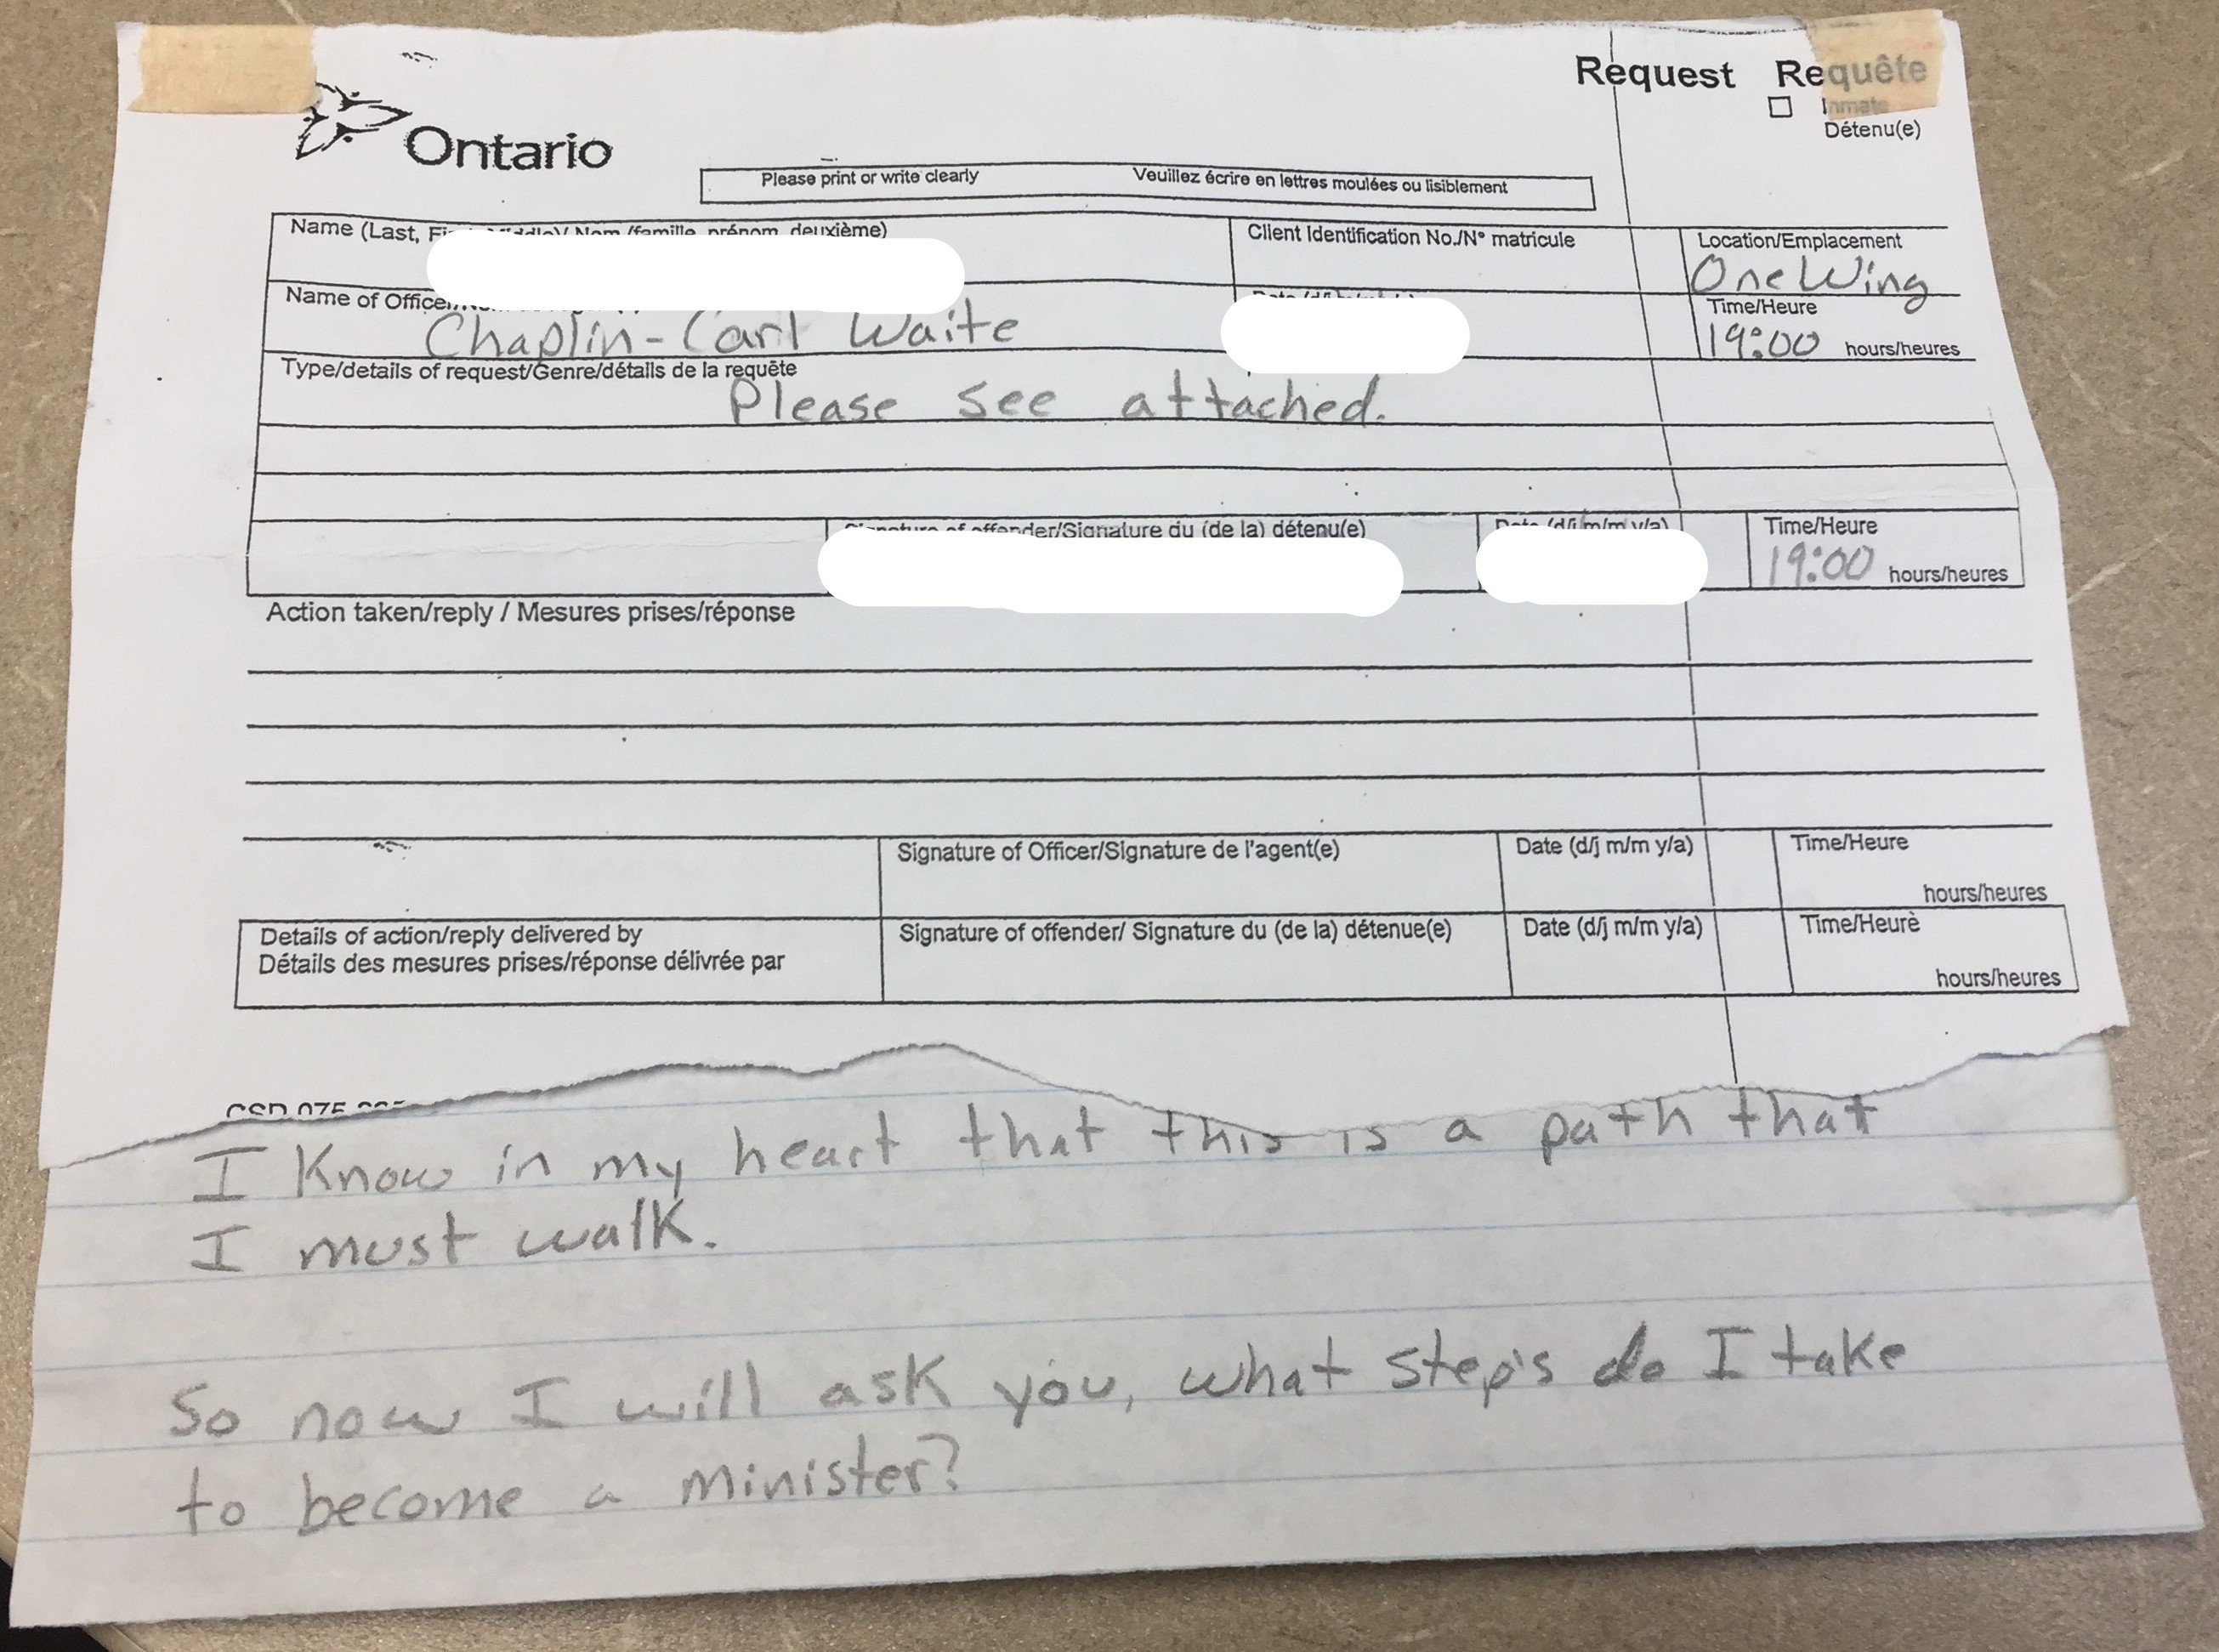 Request Requête
Inmate
Détenu(e)
Ontario
Please print or write clearly Veuillez écrire en lettres moulées ou lisiblement
Name (Last, /Nom (famille, prénom, deuxième)
Client Identification No./N° matricule
Location/Emplacement
One Wing
Name of Officer
Chaplin-Carl Waite
Time/Heure
19:00 hours/heures
Type/details of request/Genre/détails de la requête
Please see attached.
Signature of offender/Signature du (de la) détenu(e)
Date (d/j m/m y/a)
Time/Heure
19:00 hours/heures
Action taken/reply / Mesures prises/réponse
Signature of Officer/Signature de l'agent(e)
Date (d/j m/m y/a)
Time/Heure
hours/heures
Details of action/reply delivered by
Détails des mesures prises/réponse délivrée par
Signature of offender/ Signature du (de la) détenue(e)
Date (d/j m/m y/a)
Time/Heure
hours/heures
CSD 075
I Know in my heart that this is a path that
I must walk.
So now I will ask you, what step's do I take
to become a minister?